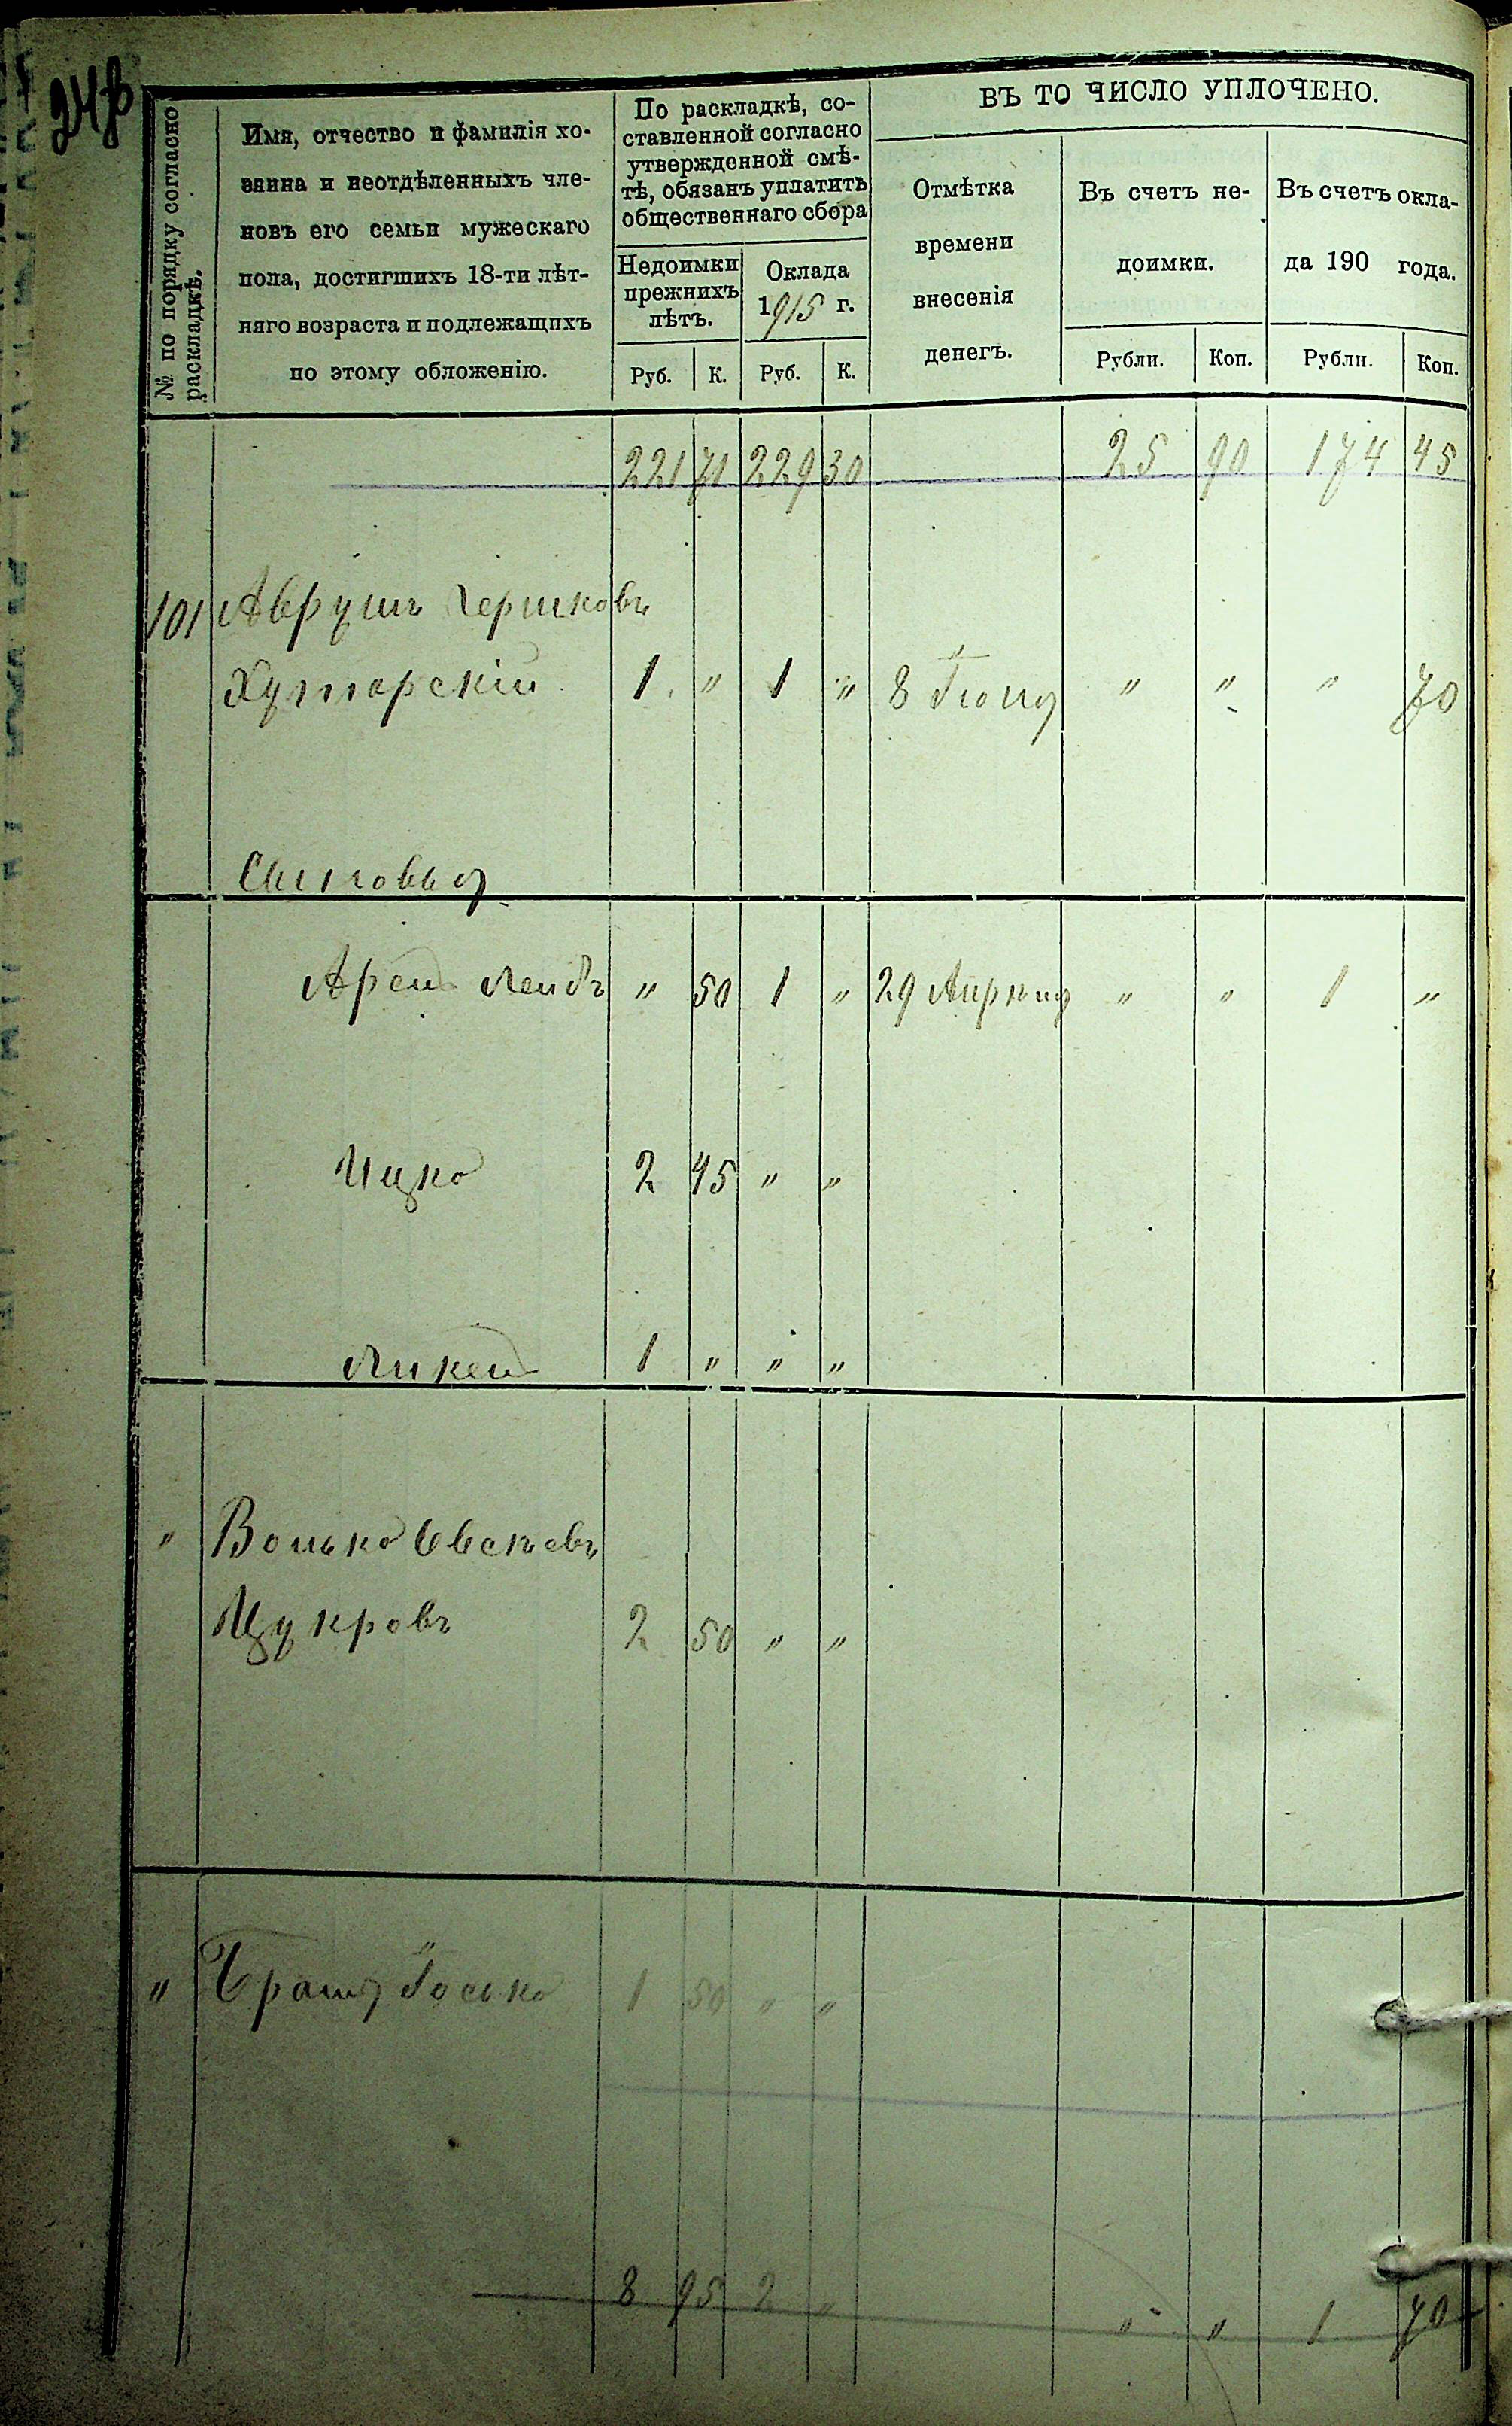 № по порядку согласно раскладкѣ.
Имя, отчество и фамилія хо-
зяина и неотдѣленныхъ чле-
новъ его семьи мужескаго
пола, достигшихъ 18-ти лѣт-
няго возраста и подлежащихъ
по этому обложенію.
По раскладкѣ, со-
ставленной согласно
утвержденной смѣ-
тѣ, обязанъ уплатить
общественнаго сбора
Недоимки прежнихъ лѣтъ.
Оклада 1915 г.
Руб. К. Руб. К.
ВЪ ТО ЧИСЛО УПЛОЧЕНО.
Отмѣтка
времени
внесенія
денегъ.
Въ счетъ не-
доимки.
Въ счетъ окла-
да 190 года.
Рубли. Коп. Рубли. Коп.
221 71 229 30 25 90 174 45
101 Аврумъ Гершковъ
Хуторскій 1 " 1 " 8 Іюня " " " 70
Сыновья
Арон Лейбъ " 50 1 " 29 Апрѣля " " 1 "
Ицко 2 45 " "
1 " " "
" Волько
Цукровъ 2 50 " "
" Іосько 1 50 " "
8 95 2 " " " 1 70